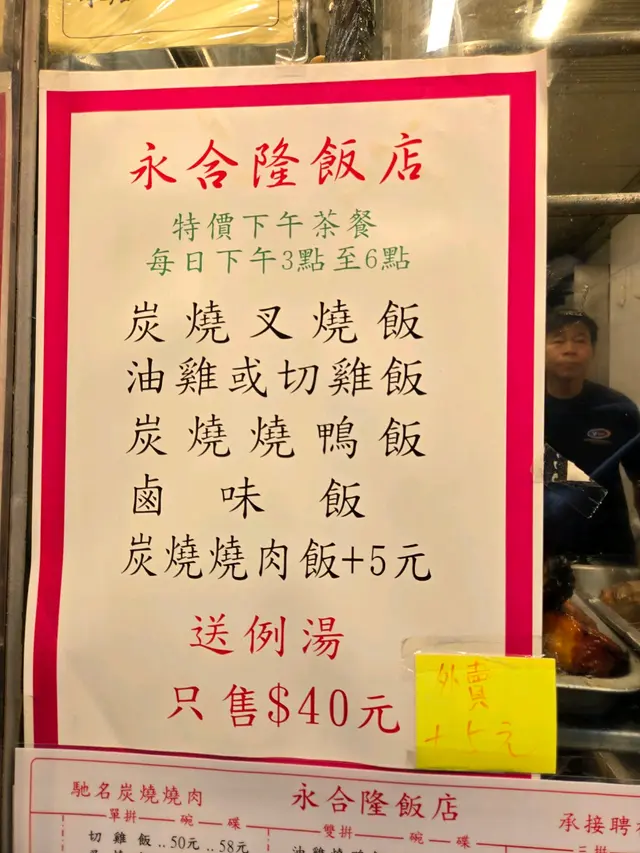 永合隆飯店
特價下午茶餐
每日下午3點至6點
炭燒叉燒飯
油雞或切雞飯
炭燒燒鴨飯
鹵味飯
炭燒燒肉飯+5元
送例湯
只售$40元
外賣
+5元
馳名炭燒燒肉
永合隆飯店
承接聘
單拼—碗—碟
雙拼—碗—碟
三拼
切雞飯..50元..58元